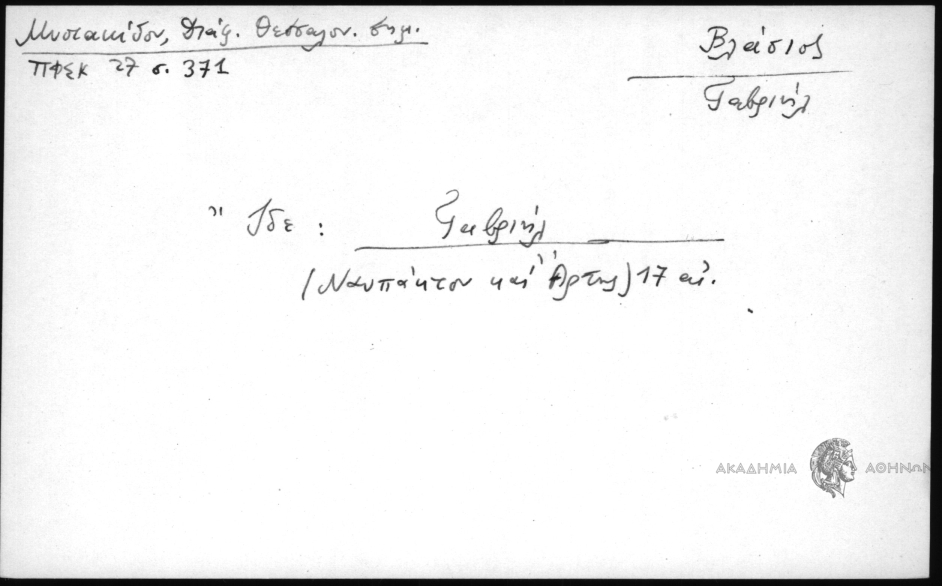 Μυστακίδου, Διάφ. Θεσσαλον. σημ.
ΠΦΣΚ 27 σ. 371
Βλάσιος
Γαβριήλ
Ἴδε : Γαβριήλ
(Ναυπάκτου καὶ Ἄρτης) 17 αἰ.
ΑΚΑΔΗΜΙΑ ΑΘΗΝΩΝ